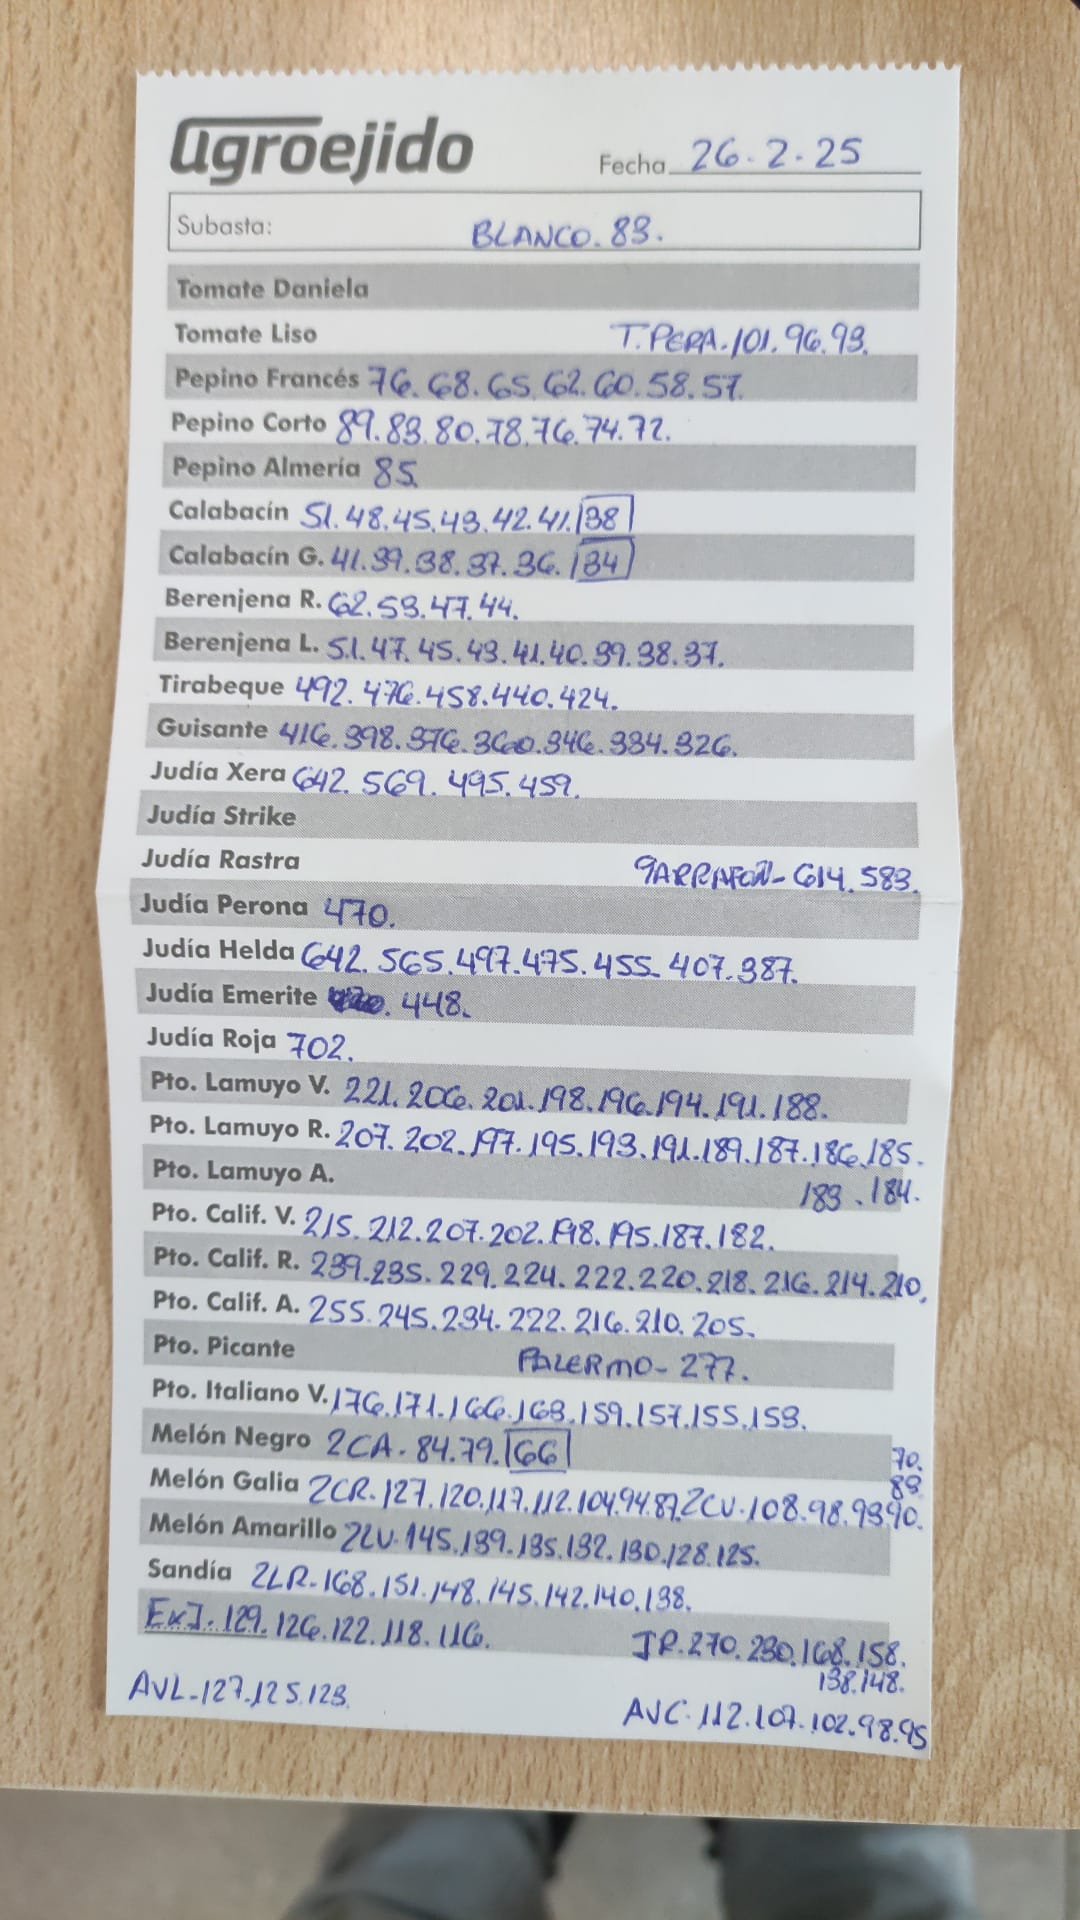 agroejido
Fecha 26.2.25
Subasta: BLANCO.83.
Tomate Daniela
Tomate Liso T.PERA.101.96.93.
Pepino Francés 76.68.65.62.60.58.57.
Pepino Corto 89.83.80.78.76.74.72.
Pepino Almería 85.
Calabacín 51.48.45.43.42.41.38
Calabacín G. 41.39.38.37.36.34
Berenjena R. 62.53.47.44.
Berenjena L. 51.47.45.43.41.40.39.38.37.
Tirabeque 492.476.458.440.424.
Guisante 416.398.376.360.346.334.326.
Judía Xera 642.569.495.459.
Judía Strike
Judía Rastra GARRAFON-614.583.
Judía Perona 470.
Judía Helda 642.565.497.475.455.407.387.
Judía Emerite 448.
Judía Roja 702.
Pto. Lamuyo V. 221.206.201.198.196.194.191.188.
Pto. Lamuyo R. 207.202.197.195.193.191.189.187.186.185.
Pto. Lamuyo A. 183.184.
Pto. Calif. V. 215.212.207.202.198.195.187.182.
Pto. Calif. R. 239.235.229.224.222.220.218.216.214.210.
Pto. Calif. A. 255.245.234.222.216.210.205.
Pto. Picante PALERMO-277.
Pto. Italiano V. 176.171.166.163.159.157.155.153.
Melón Negro 2CA-84.79.66
70.
Melón Galia 2CR-127.120.117.112.104.94.87.2CV-108.98.93.90.
Melón Amarillo 2LV-145.139.135.132.130.128.125.
Sandía 2LR-168.151.148.145.142.140.138.
129.126.122.118.116.
270.230.168.158.
138.148.
AVL-127.125.123.
AVC-112.107.102.98.95